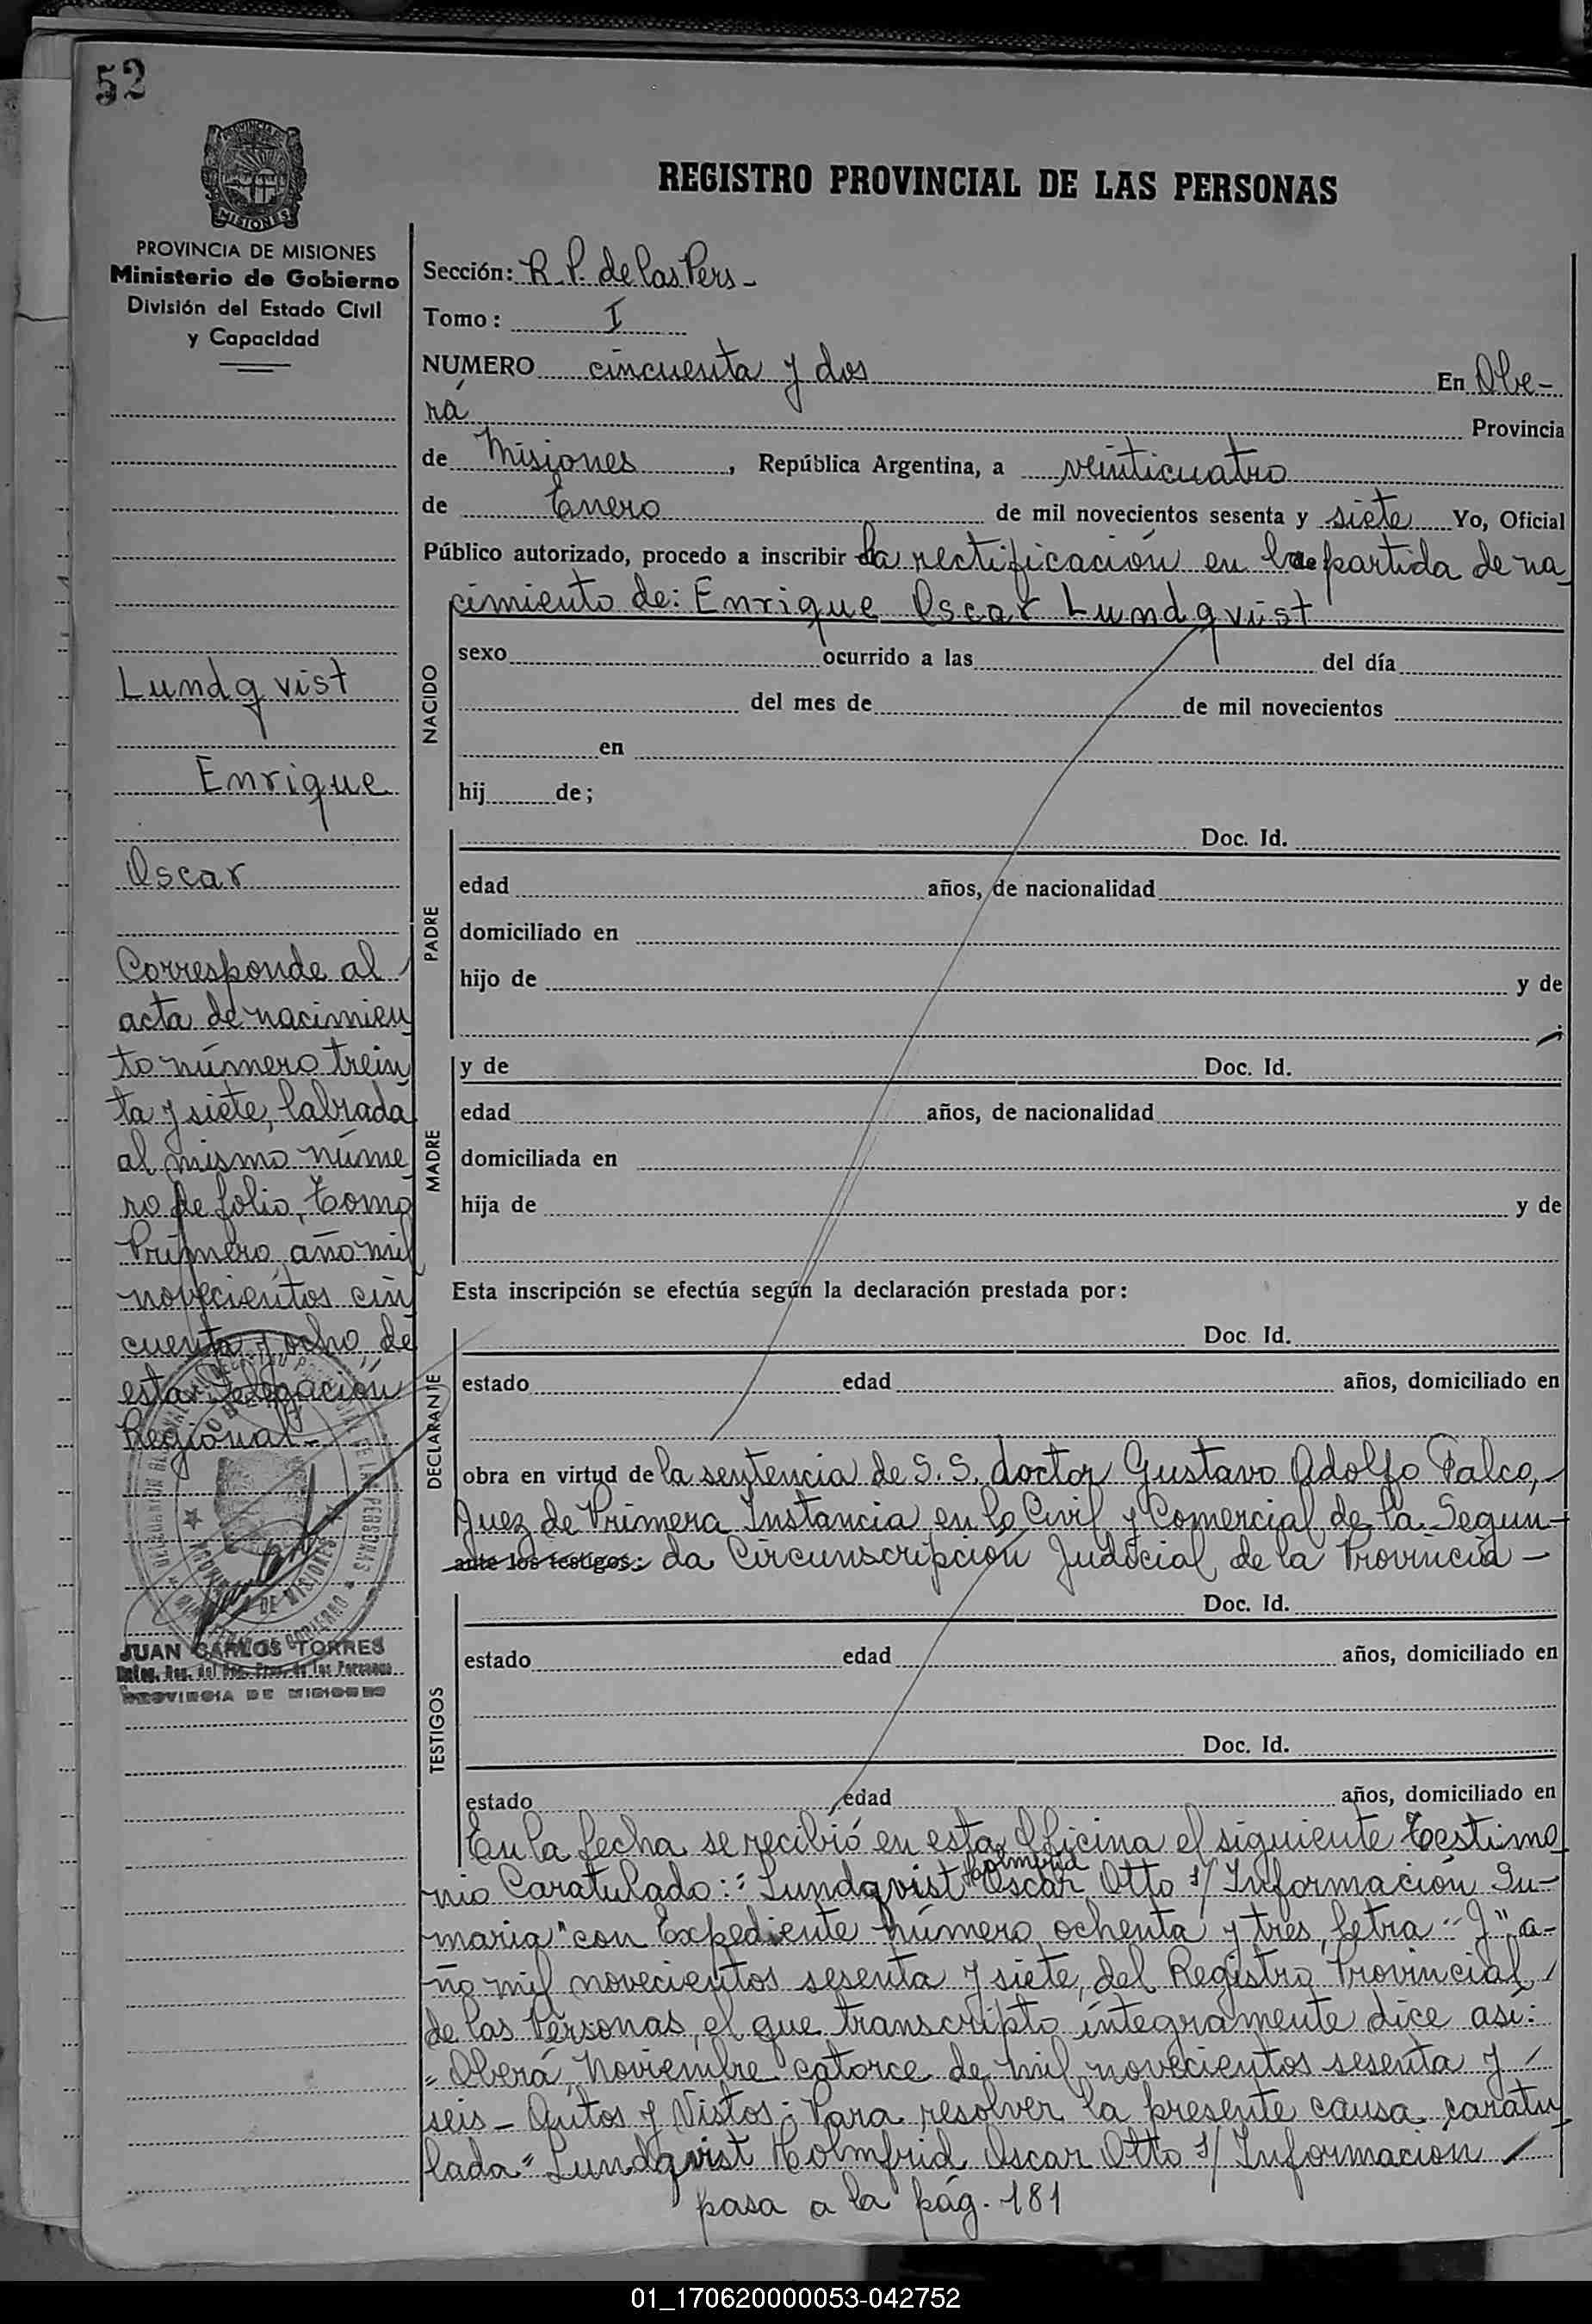 52
PROVINCIA DE MISIONES
Ministerio de Gobierno
División del Estado Civil
y Capacidad
REGISTRO PROVINCIAL DE LAS PERSONAS
Sección: R. P. de las Pers -
Tomo: I
NUMERO cincuenta y dos En Obe-
rá Provincia
de Misiones, República Argentina, a veinticuatro
de Enero de mil novecientos sesenta y siete Yo, Oficial
Público autorizado, procedo a inscribir la rectificación en la partida de na
cimiento de: Enrique Oscar Lundqvist
NACIDO
sexo ocurrido a las del día
del mes de de mil novecientos
en
hij de;
PADRE
Doc. Id.
edad años, de nacionalidad
domiciliado en
hijo de y de
;
MADRE
y de Doc. Id.
edad años, de nacionalidad
domiciliada en
hija de y de
Esta inscripción se efectúa según la declaración prestada por:
DECLARANTE
Doc. Id.
estado edad años, domiciliado en
obra en virtud de la sentencia de S. S. doctor Gustavo Adolfo Palco,-
Juez de Primera Instancia en lo Civil y Comercial de la Segun-
ante los testigos: da Circunscripción Judicial de la Provincia -
TESTIGOS
Doc. Id.
estado edad años, domiciliado en
Doc. Id.
estado edad años, domiciliado en
En la fecha se recibió en esta Oficina el siguiente Testimo
Holmfrid
nio Caratulado: "Lundqvist Oscar Otto s/ Información Su-
maria" con Expediente número ochenta y tres, letra "J" a-
ño mil novecientos sesenta y siete, del Registro Provincial /
de las Personas, el que transcripto íntegramente dice así:
"Oberá, Noviembre catorce de mil novecientos sesenta y /
seis - Autos y Vistos: Para resolver la presente causa caratu
lada "Lundqvist Holmfrid Oscar Otto s/ Información /
pasa a la pág. 181
Lundqvist
Enrique
Oscar
Corresponde al /
acta de nacimien
to número trein
ta y siete, labrada
al mismo núme
ro de folio, Tomo
Primero, año mil
novecientos cin
cuenta y ocho, de
esta Delegación
Regional -
JUAN CARLOS TORRES
Deleg. Reg. del Reg. Prov. de las Personas
PROVINCIA DE MISIONES
01_170620000053-042752